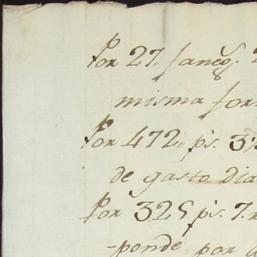 Por 27. faneg.
misma for
Por 472. p.s 3
de gasto dia
Por 325 p.s 7. r
-ponde por